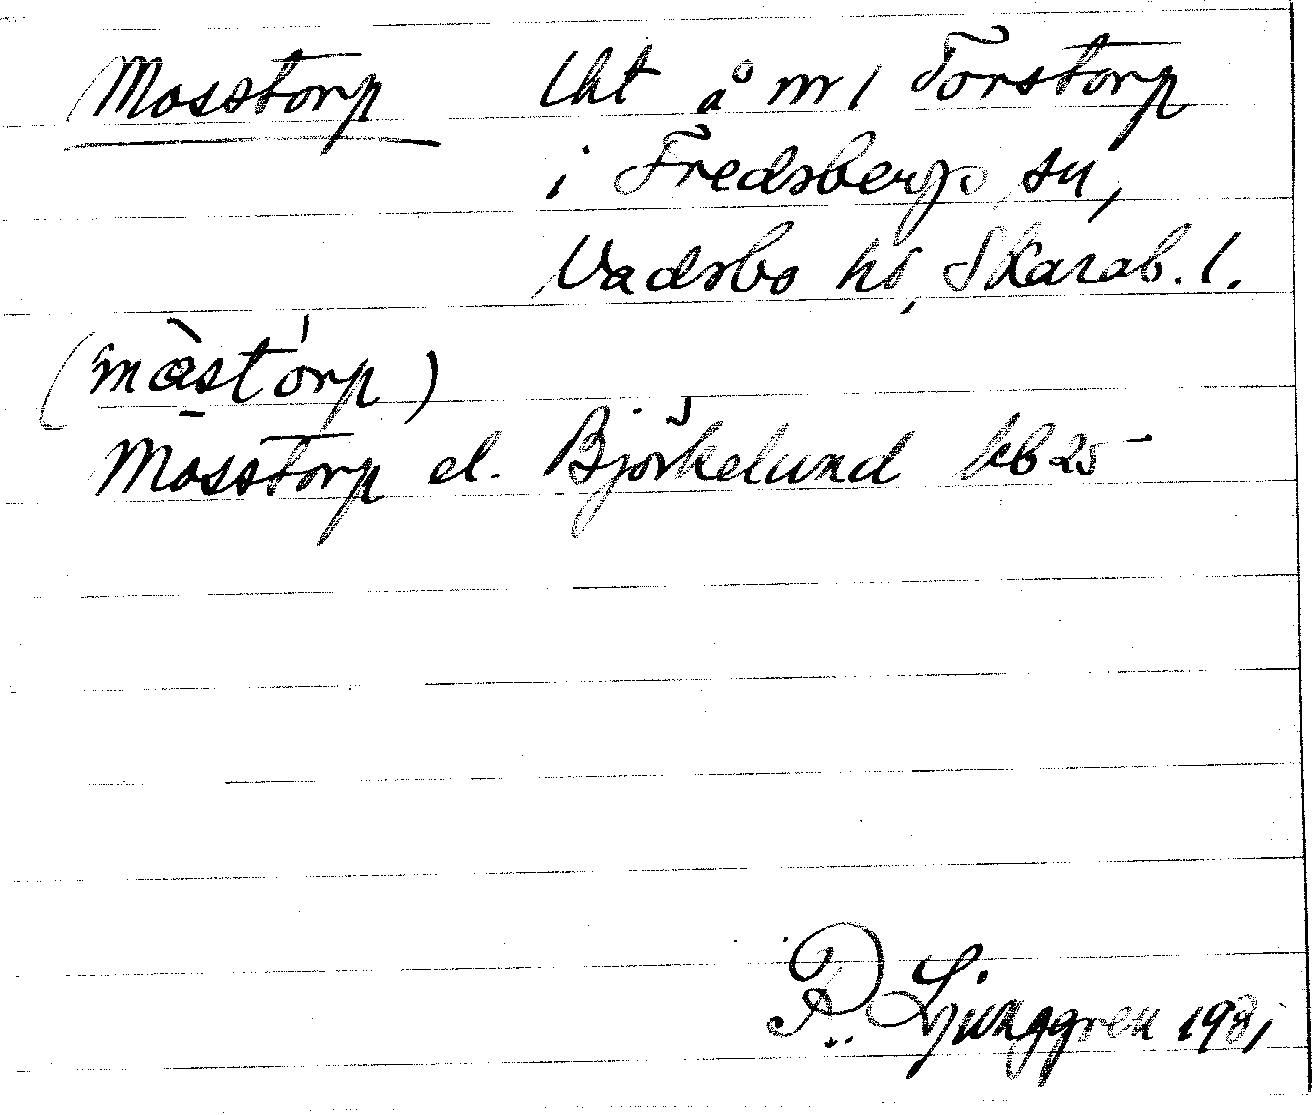 Mosstorp lht å nr 1 Torstorp
i Fredsbergs sn,
Vadsbo hd, Skarab. l.
(mɑ̀st órp)
Mosstorp el. Björkelund kb 25
R. Ljunggren 1981